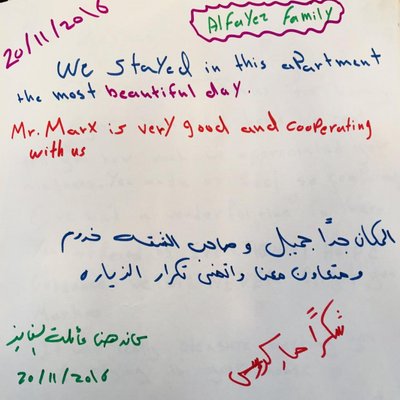 20/11/2016
Alfayez Family
We stayed in this apartment
the most beautiful day.
Mr. Marx is very good and cooperating
with us
المكان جداً جميل و صاحب الشقته خدوم
ومتعاون معنا واتمنى تكرار الزياره
شكراً ماركوس
كانت هنا عائلت الفايز
20/11/2016